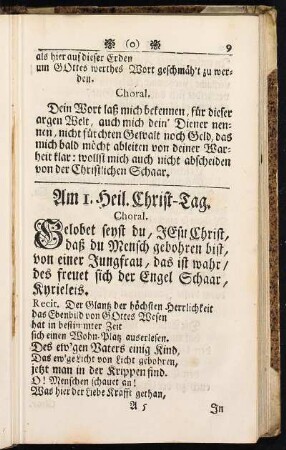 (o) 9
als hier auf dieser Erden
um GOttes werthes Wort geschmäh't zu wer-
den.
Choral.
Dein Wort laß mich bekennen, für dieser
argen Welt, auch mich dein' Diener nen-
nen, nicht fürchten Gewalt noch Geld, das
mich bald möcht ableiten von deiner War-
heit klar: wollst mich auch nicht abscheiden
von der Christlichen Schaar.
Am 1. Heil. Christ-Tag.
Choral.
Gelobet seyst du, JEsu Christ,
daß du Mensch gebohren bist,
von einer Jungfrau, das ist wahr/
des freuet sich der Engel Schaar,
Kyrieleis.
Recit. Der Glantz der höchsten Herrlichkeit
das Ebenbild von GOttes Wesen
hat in bestimmter Zeit
sich einen Wohn-Platz auserlesen.
Des ew'gen Vaters einig Kind,
Das ew'ge Licht von Licht gebohren,
jetzt man in der Krippen find.
O! Menschen schauet an!
Was hier der Liebe Krafft gethan,
A 5 In